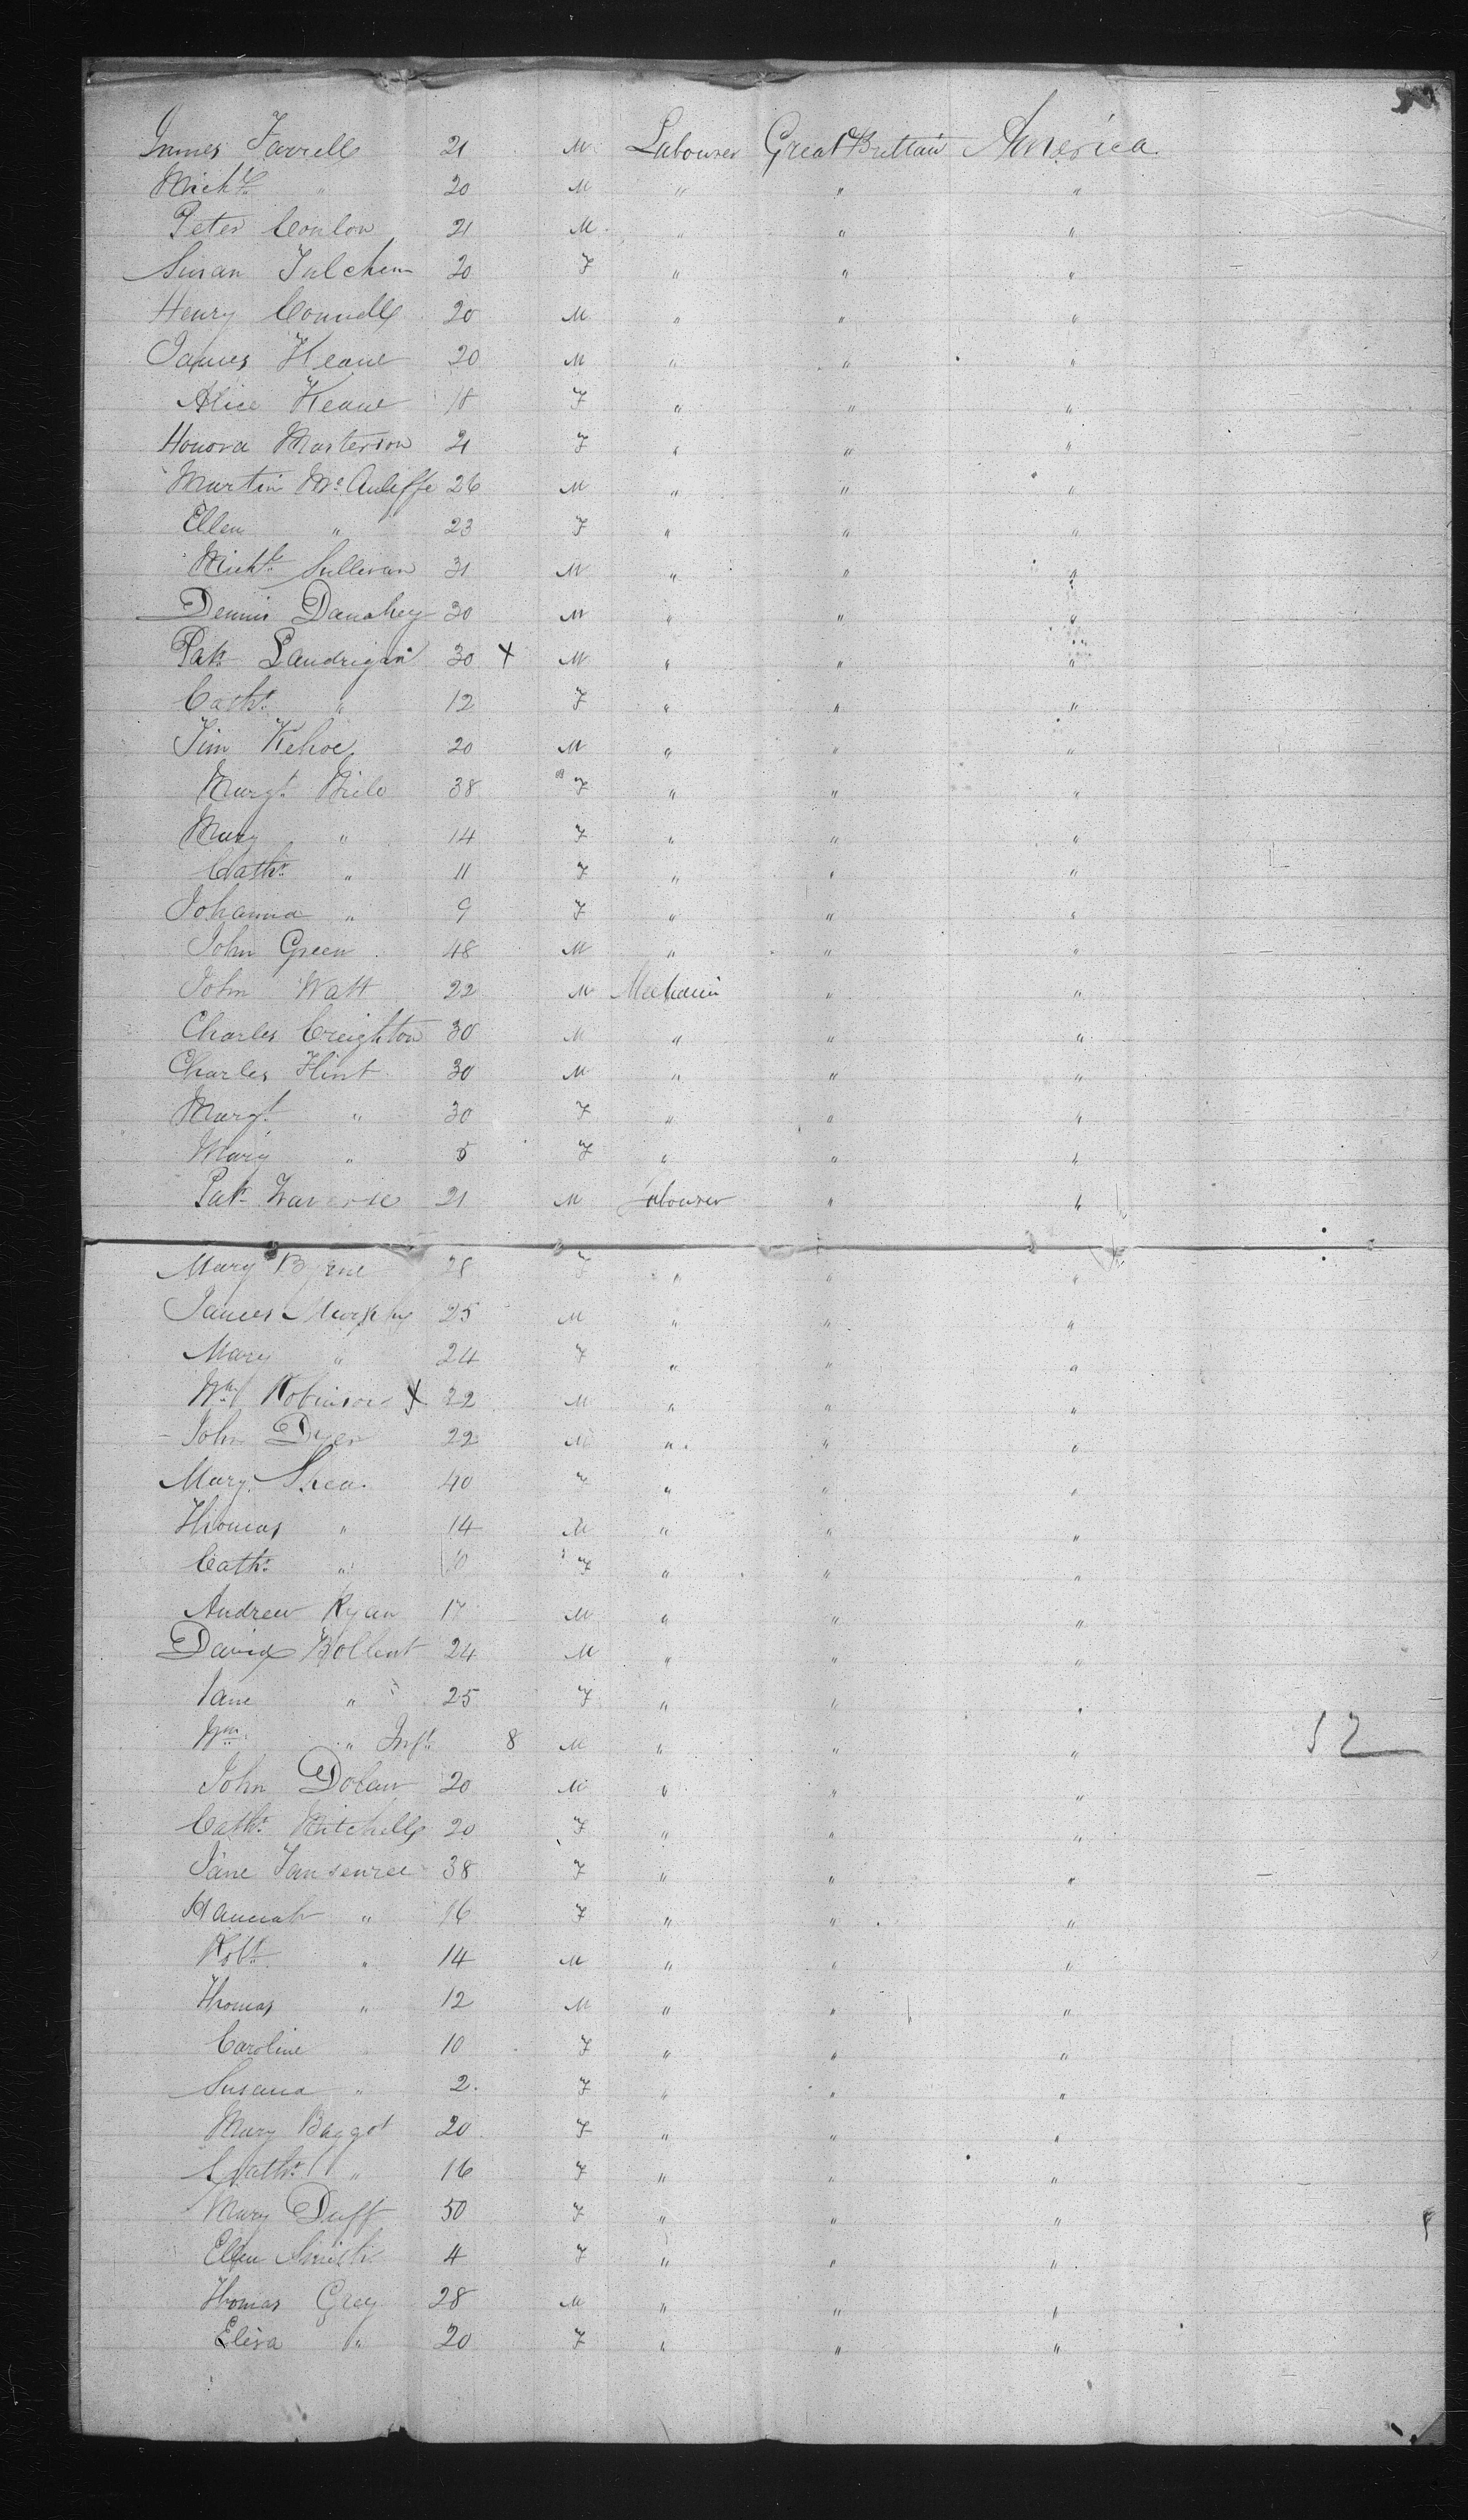 James Farrell 21 M Labourer Great Brittain America
Michl. " 20 M " " "
Peter Conlon 21 M " " "
Susan 20 F " " "
Henry Connell 20 M " " "
James Keane 20 M " " "
Alice Keane 18 F " " "
Honora Masterson 21 F " " "
Martin McAuliffe 26 M " " "
Ellen " 23 F " " "
Michl. Sullivan 31 M " " "
Dennis Danahey 30 M " " "
Pak Landrigan 30 X M " " "
Cathe. " 12 F " " "
Jim Kehoe 20 M " " "
Margt. 38 F " " "
Mary " 14 F " " "
Cathe. " 11 F " " "
Johanna " 9 F " " "
John Green 48 M " " "
John Watt 22 M Mechanic " "
Charles Creighton 30 M " " "
Charles Flint 30 M " " "
Margt. " 30 F " " "
Mary " 5 F " " "
Pak 21 M Labourer " "
Mary Byrne 28 F " " "
James Murphy 25 M " " "
Mary " 24 F " " "
Wm. Robinson X 22 M " " "
John Dyer 22 M " " "
Mary Shea 40 F " " "
Thomas " 14 M " " "
Cathe. " 10 F " " "
Andrew Ryan 17 M " " "
David 24 M " " "
Jane " 25 F " " "
Wm. " Inft. 8 M " " " 52
John Dolan 20 M " " "
Cathe. Mitchell 20 F " " "
Jane 38 F " " "
Hannah " 16 F " " "
Robt. " 14 M " " "
Thomas " 12 M " " "
Caroline " 10 F " " "
Susana " 2 F " " "
Mary Baggot 20 F " " "
Cathe. " 16 F " " "
Mary Duff 50 F " " "
Ellen Smith 4 F " " "
Thomas Grey 28 M " " "
Eliza " 20 F " " "